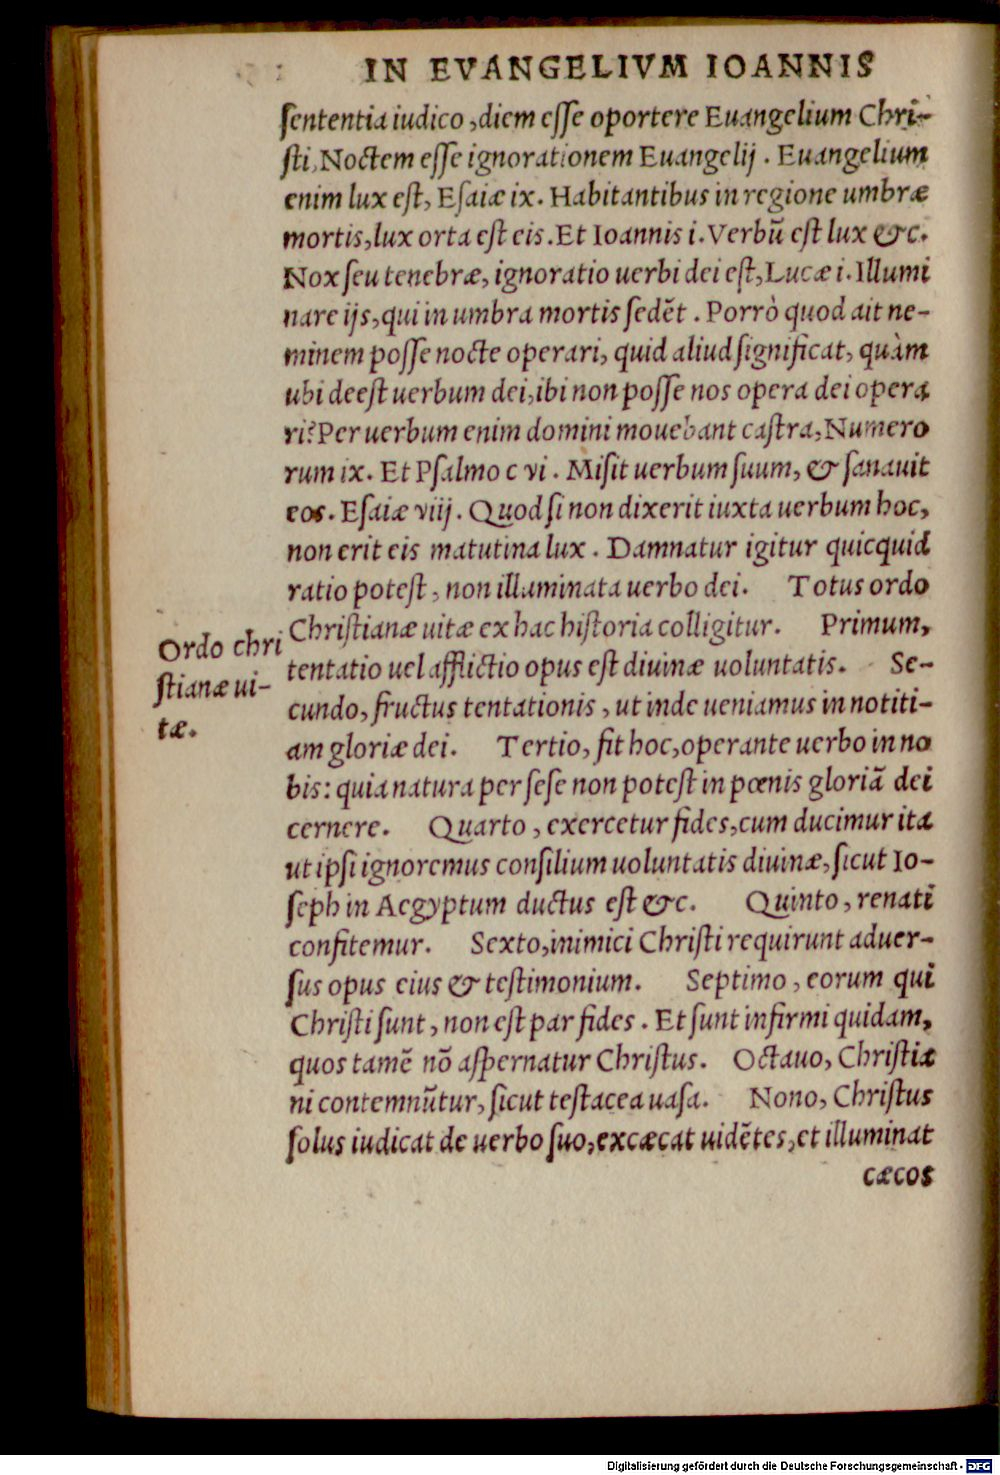 IN EVANGELIVM IOANNIS
sententia iudico, diem esse oportere Euangelium Chri-
sti, Noctem esse ignorationem Euangelij. Euangelium
enim lux est, Esaiæ ix. Habitantibus in regione umbræ
mortis, lux orta est eis. Et Ioannis i. Verbũ est lux &c.
Nox seu tenebræ, ignoratio uerbi dei est, Lucæ i. Illumi
nare ijs, qui in umbra mortis sedẽt. Porrò quod ait ne-
minem posse nocte operari, quid aliud significat, quàm
ubi deest uerbum dei, ibi non posse nos opera dei opera
ri? Per uerbum enim domini mouebant castra, Numero
rum ix. Et Psalmo c vi. Misit uerbum suum, & sanauit
eos. Esaiæ viij. Quod si non dixerit iuxta uerbum hoc,
non erit eis matutina lux. Damnatur igitur quicquid
ratio potest, non illuminata uerbo dei. Totus ordo
Christianæ uitæ ex hac historia colligitur. Primum,
tentatio uel afflictio opus est diuinæ uoluntatis. Se-
cundo, fructus tentationis, ut inde ueniamus in notiti-
am gloriæ dei. Tertio, fit hoc, operante uerbo in no
bis: quia natura per sese non potest in pœnis gloriã dei
cernere. Quarto, exercetur fides, cum ducimur ita
ut ipsi ignoremus consilium uoluntatis diuinæ, sicut Io-
seph in Aegyptum ductus est &c. Quinto, renati
confitemur. Sexto, inimici Christi requirunt aduer-
sus opus eius & testimonium. Septimo, eorum qui
Christi sunt, non est par fides. Et sunt infirmi quidam,
quos tamẽ nõ aspernatur Christus. Octauo, Christia
ni contemnũtur, sicut testacea uasa. Nono, Christus
solus iudicat de uerbo suo, excæcat uidẽtes, et illuminat
cæcos
Ordo chri
stianæ ui-
tæ.
Digitalisierung gefördert durch die Deutsche Forschungsgemeinschaft - DFG